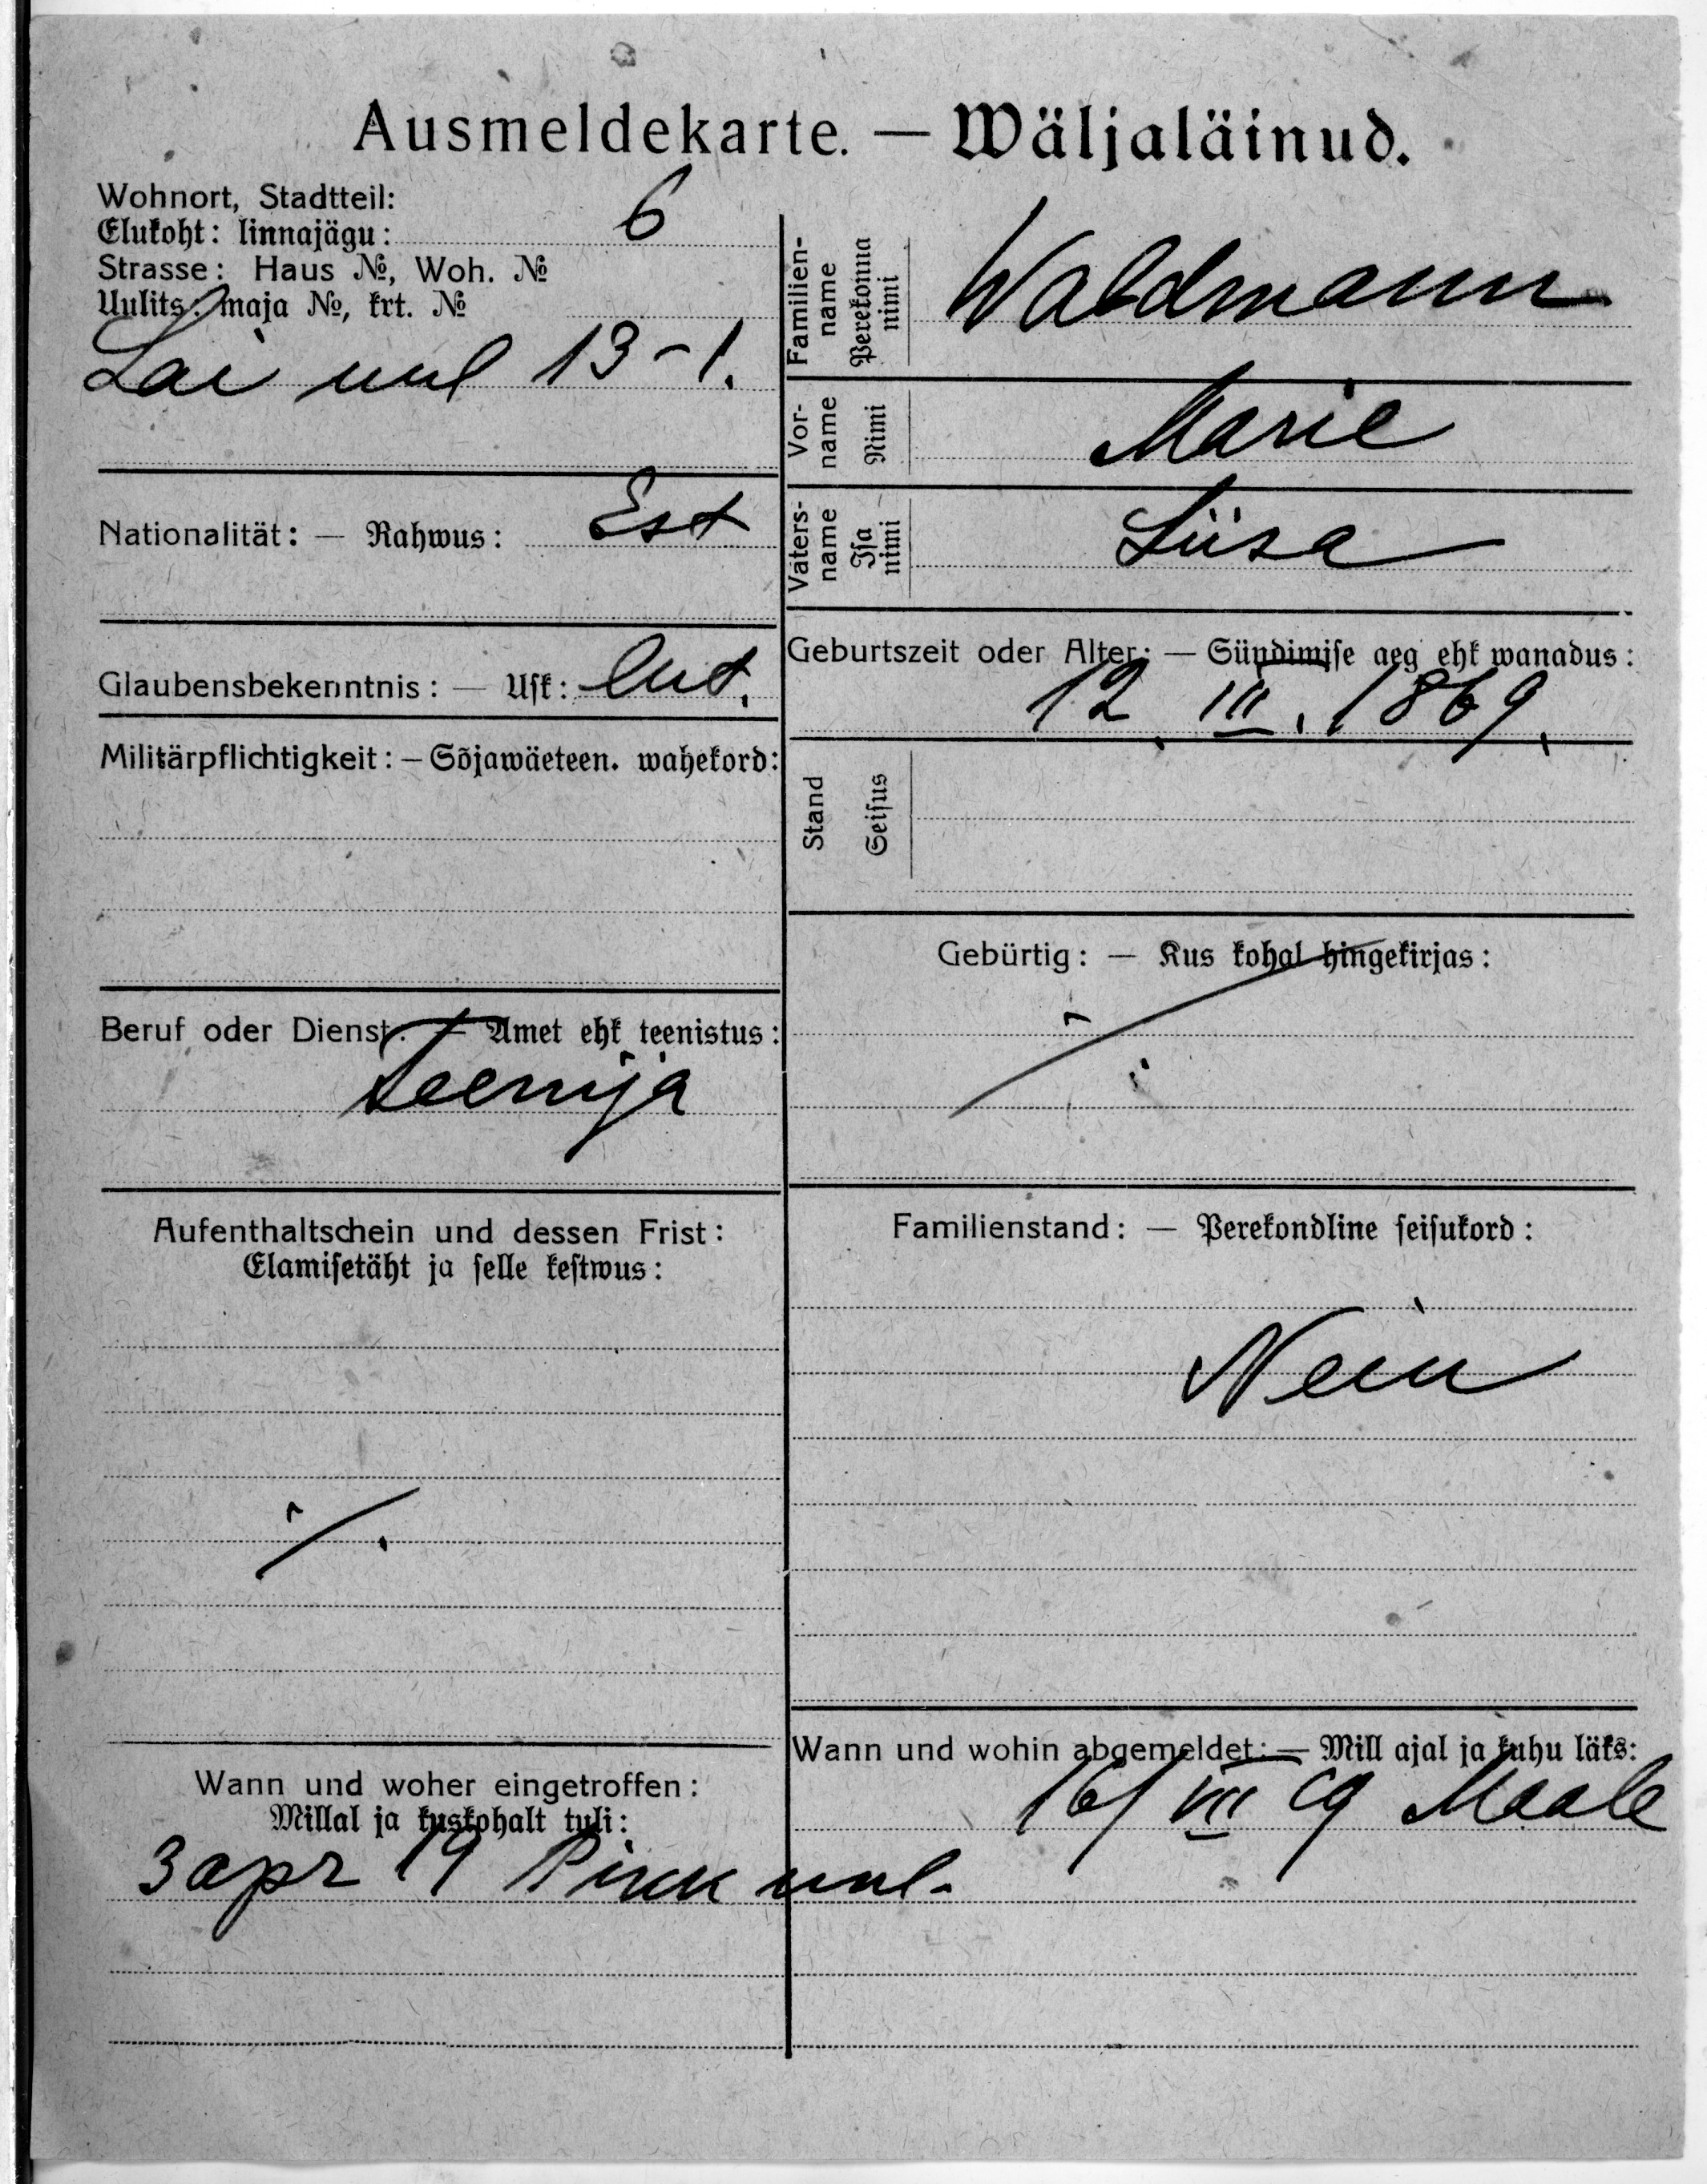 Ausmeldekarte. — Wäljaläinud.
Wohnort, Stadtteil:
Elukoht: linnajägu: 6
Strasse: Haus №, Woh. №
Uulits: maja №, krt. №
Lai uul 13-1.
Nationalität: — Rahwus: Est
Glaubensbekenntnis: — Usk: lut.
Militärpflichtigkeit: — Sõjawäeteen. wahekord:
Beruf oder Dienst: — Amet ehk teenistus:
Teenija
Aufenthaltschein und dessen Frist:
Elamisetäht ja selle kestwus:
·/.
Wann und woher eingetroffen:
Millal ja kuskohalt tuli:
3 apr 19 Pikk uul.
Familien-
name
Perekonna
nimi
Waldmann
Vor-
name
Nimi
Marie
Vaters-
name
Isa
nimi
Liisa
Geburtszeit oder Alter: — Sündimise aeg ehk wanadus:
12. III. 1869.
Stand
Seisus
Gebürtig: — Kus kohal hingekirjas:
·/.
Familienstand: — Perekondline seisukord:
Nein
Wann und wohin abgemeldet: — Mill ajal ja kuhu läks:
16/VII 19 Maale